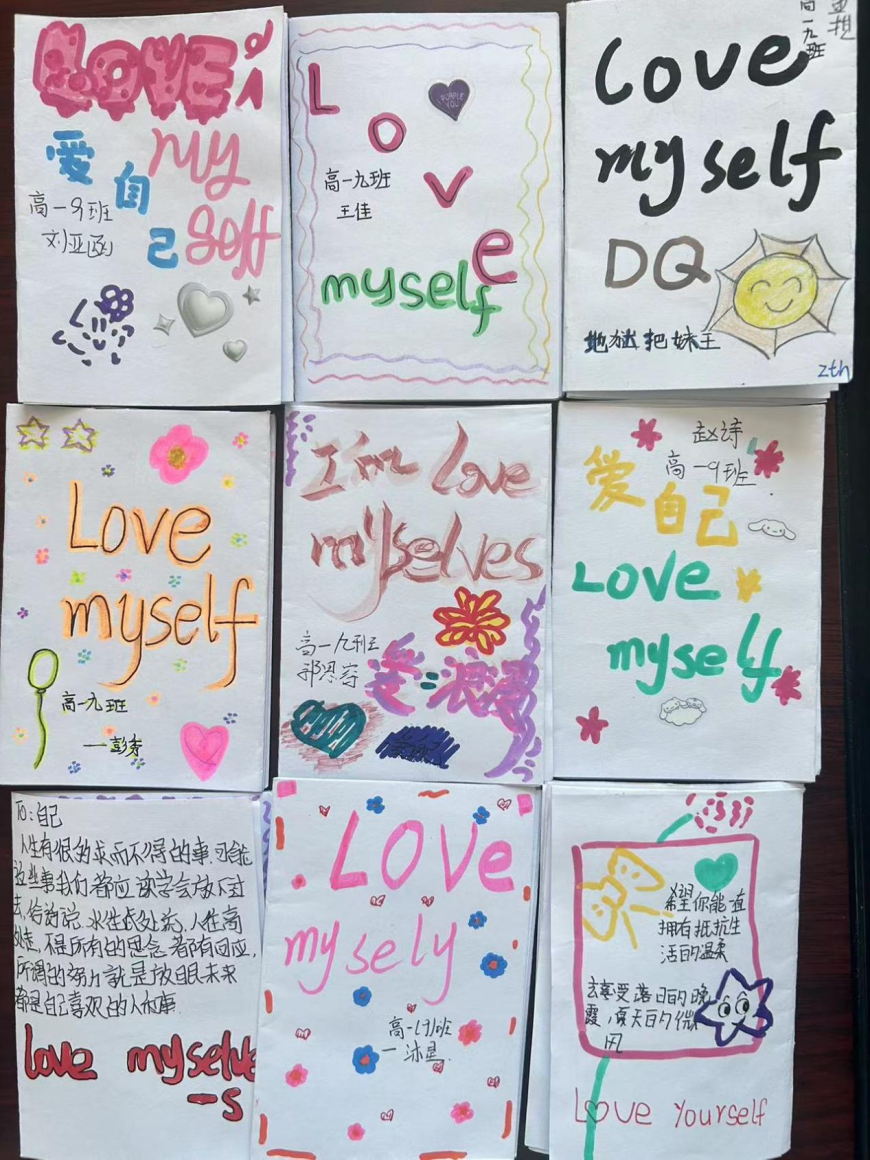 LOVE
my
爱
自
高一9班
刘亚函
己
self
L
PURPLE
YOU
O
高一九班
V
王佳
e
myself
高一九班
Love
myself
DQ
地狱把妹王
zth
Love
myself
高一九班
一彭芳
I'm love
myselves
高一九班
爱=浪漫
赵诗
高一9班
爱自己
Love
myself
To:自己
人生有很多求而不得的事,可能
这些事我们都应该学会放下过
去,俗话说,水往低处流,人往高
处走,不是所有的思念都有回应,
所谓的努力就是放眼未来
都是自己喜欢的人和事.
love myselve
-S
LOVe
my sely
高一九班
一沐星.
希望你能一直
拥有抵抗生
活的温柔
去享受落日的晚
霞,夏天日的微
风
Love Yourself